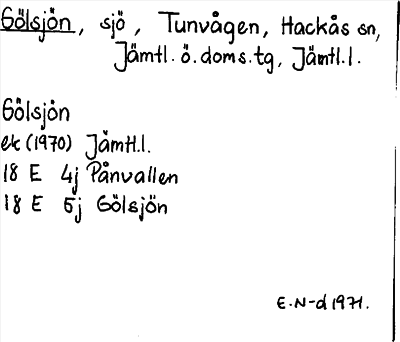 Gölsjön, sjö, Tunvågen, Hackås sn,
Jämtl. ö. doms. tg, Jämtl. l.
Gölsjön
ek (1970) Jämtl.l.
18 E 4j Pånvallen
18 E 5j Gölsjön
E. N-d 1971.